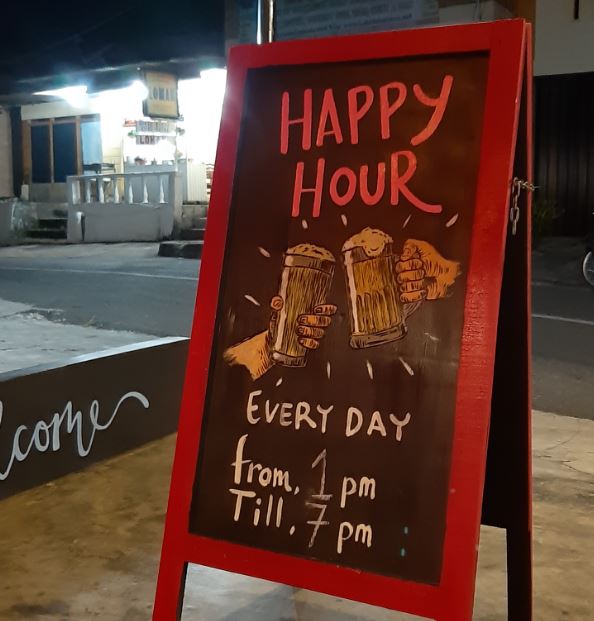 HAPPY
HOUR
EVERY DAY
from, 1 pm
Till, 7 pm